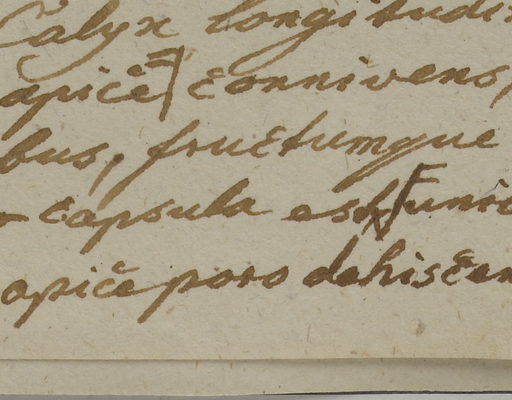 Calyx longitudin
apice connivens,
bus, fructumque
capsula est unic
apice poro dehiscen